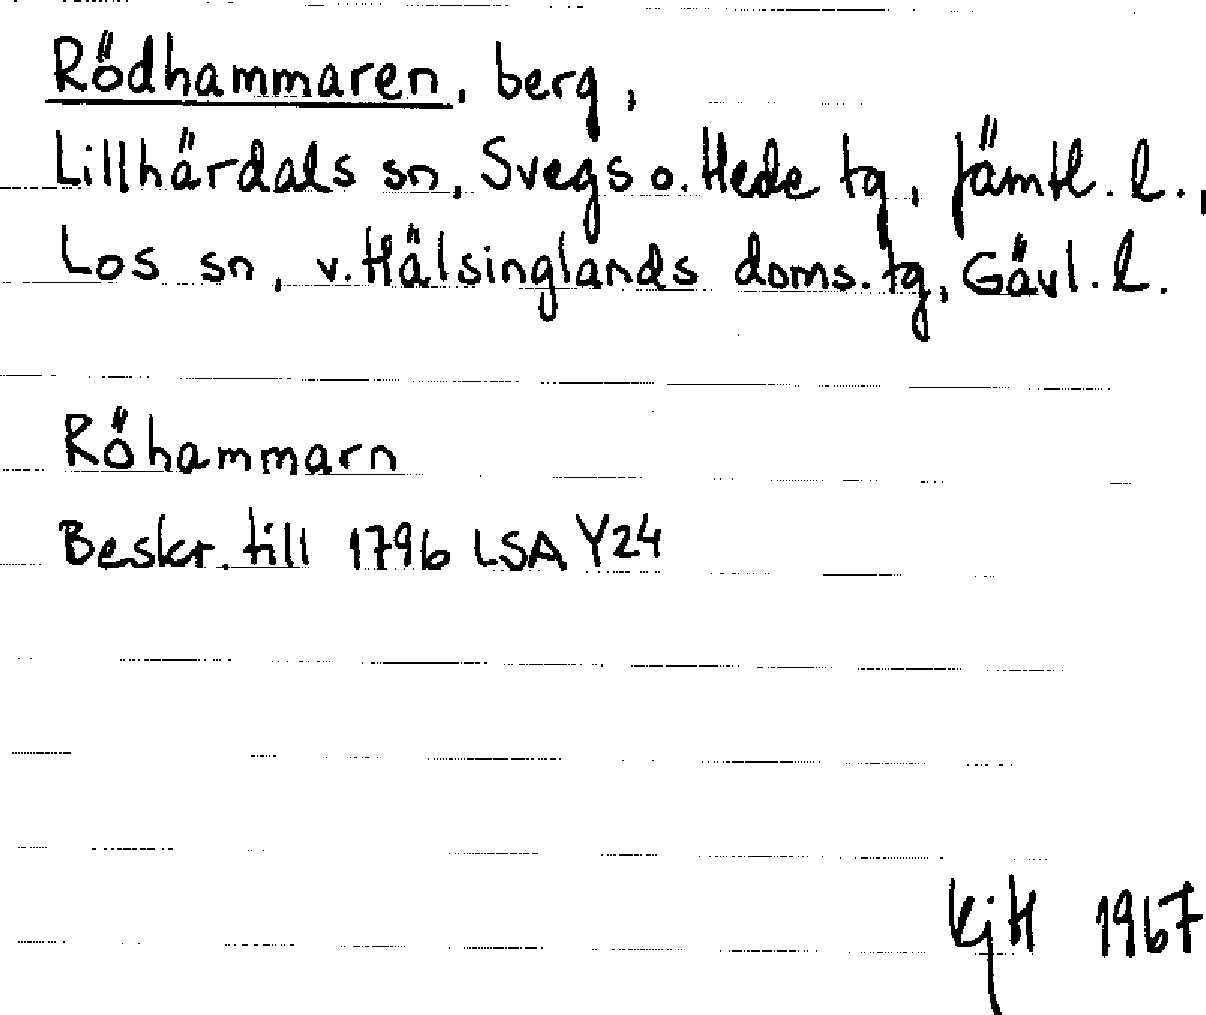 Rödhammaren, berg,
Lillhärdals sn, Svegs o. Hede tg, Jämtl. l.,
Los sn, v. Hälsinglands doms. tg, Gävl. l.
Röhammarn
Beskr. till 1796 LSA Y24
KjH 1967